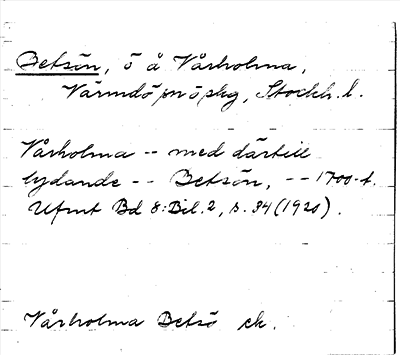 Betsön, ö å Vårholma,
Värmdö sn o skg, Stockh. l.
Vårholma -- med därtill
lydande -- Betsön, -- 1700-t.
Ufmt Bd 8: Bil. 2, s. 34 (1920).
Vårholma Betsö ek.